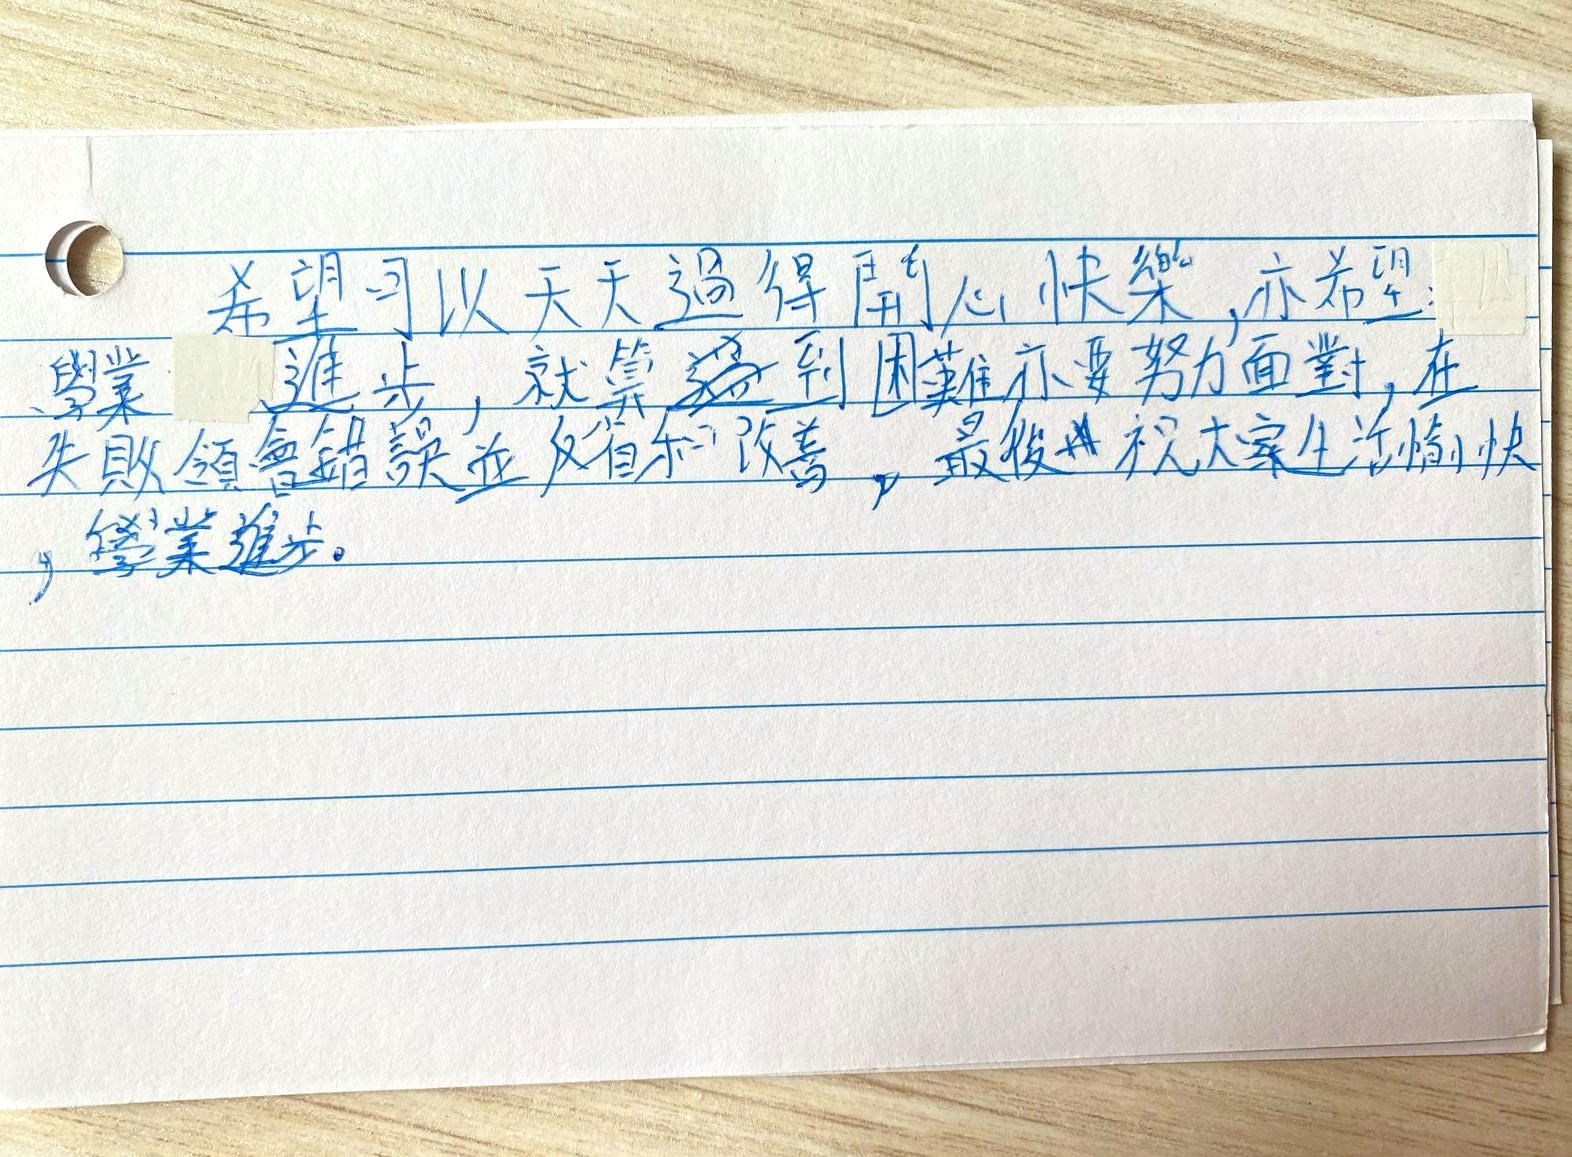 希望可以天天過得開心快樂,亦希望
學業進步,就算遇到困難亦要努力面對,在
失敗領會錯誤並反省和改善,最後祝大家生活愉快
,學業進步。